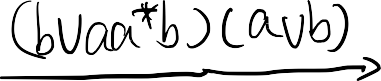 (b∪aa*b)(a∪b)